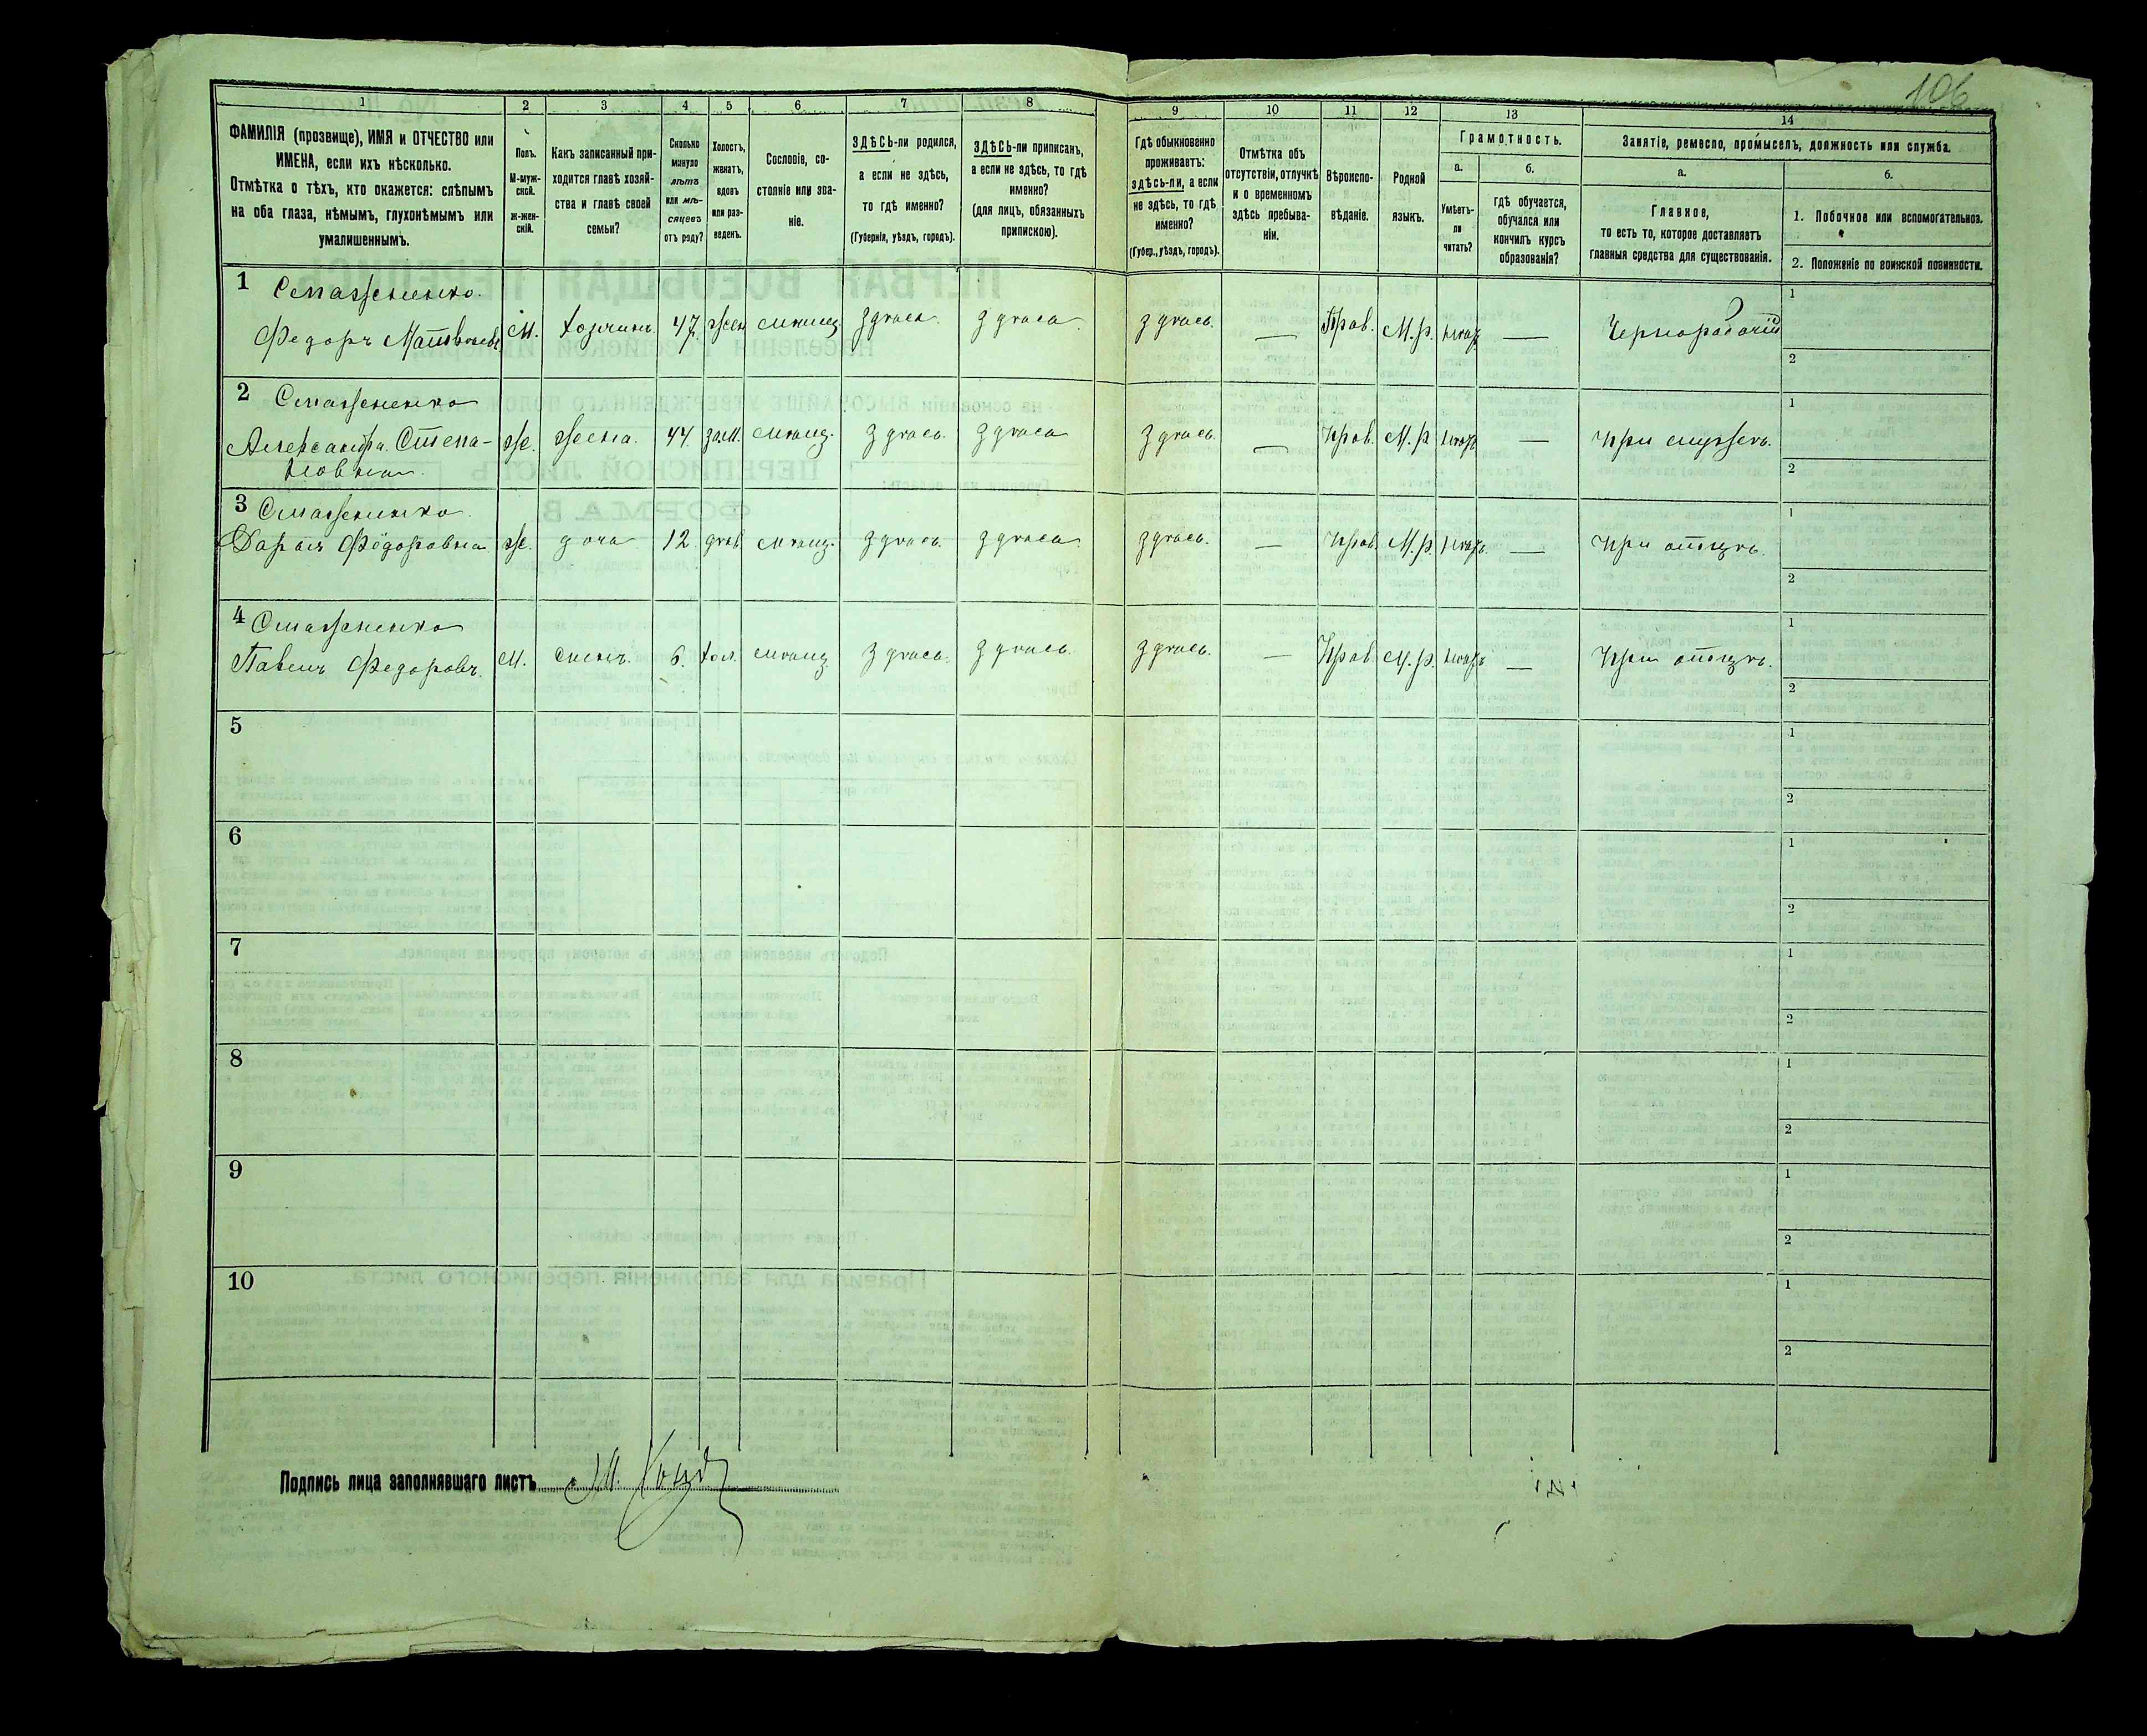 106
1
2
3
4
5
6
7
8
9
10
11
12
13
14
ФАМИЛІЯ (прозвище), ИМЯ и ОТЧЕСТВО или
ИМЕНА, если ихъ нѣсколько.
Отмѣтка о тѣхъ, кто окажется: слѣпымъ
на оба глаза, нѣмымъ, глухонѣмымъ или
умалишеннымъ.
Полъ.
М-муж-
ской.
ж-жен-
скій.
Какъ записанный при-
ходится главѣ хозяй-
ства и главѣ своей
семьи?
Сколько
минуло
лѣтъ
или мѣ-
сяцевъ
отъ роду?
Холостъ,
женатъ,
вдовъ
или раз-
веденъ.
Сословіе, со-
стояніе или зва-
ніе.
ЗДѢСЬ-ли родился,
а если не здѣсь,
то гдѣ именно?
(Губернія, уѣздъ, городъ).
ЗДѢСЬ-ли приписанъ,
а если не здѣсь, то гдѣ
именно?
(для лицъ, обязанныхъ
припискою).
Гдѣ обыкновенно
проживаетъ:
здѣсь-ли, а если
не здѣсь, то гдѣ
именно?
(Губер., уѣздъ, городъ).
Отмѣтка объ
отсутствіи, отлучкѣ
и о временномъ
здѣсь пребыва-
ніи.
Вѣроиспо-
вѣданіе.
Родной
языкъ.
Грамотность.
а.
Умѣетъ-
ли
читать?
б.
гдѣ обучается,
обучался или
кончилъ курсъ
образованія?
Занятіе, ремесло, промыселъ, должность или служба.
а.
Главное,
то есть то, которое доставляетъ
главныя средства для существованія.
б.
1. Побочное или вспомогательное.
2. Положеніе по воинской повинности.
1
Федоръ Матвѣевъ М. 47 жен мѣщ здѣсь здѣсь здѣсь. — Прав. М.р. —
Чернорабочій
1
2
2
Александра Степа-
новна ж. жена. 44. зам. мѣщ. здѣсь. здѣсь здѣсь. — Прав. М.р —
При мужѣ.
1
2
3
Дарья Фёдоровна ж. дочь 12. дѣв мѣщ. здѣсь. здѣсь здѣсь. — Прав. М.р. —
При отцѣ.
1
2
4
Павелъ Федоровъ. М. сынъ. 6. хол. мѣщ здѣсь. здѣсь. здѣсь. — Прав. М.р. —
При отцѣ.
1
2
5
1
2
6
1
2
7
1
2
8
1
2
9
1
2
10
1
2
Подпись лица заполнявшаго листъ